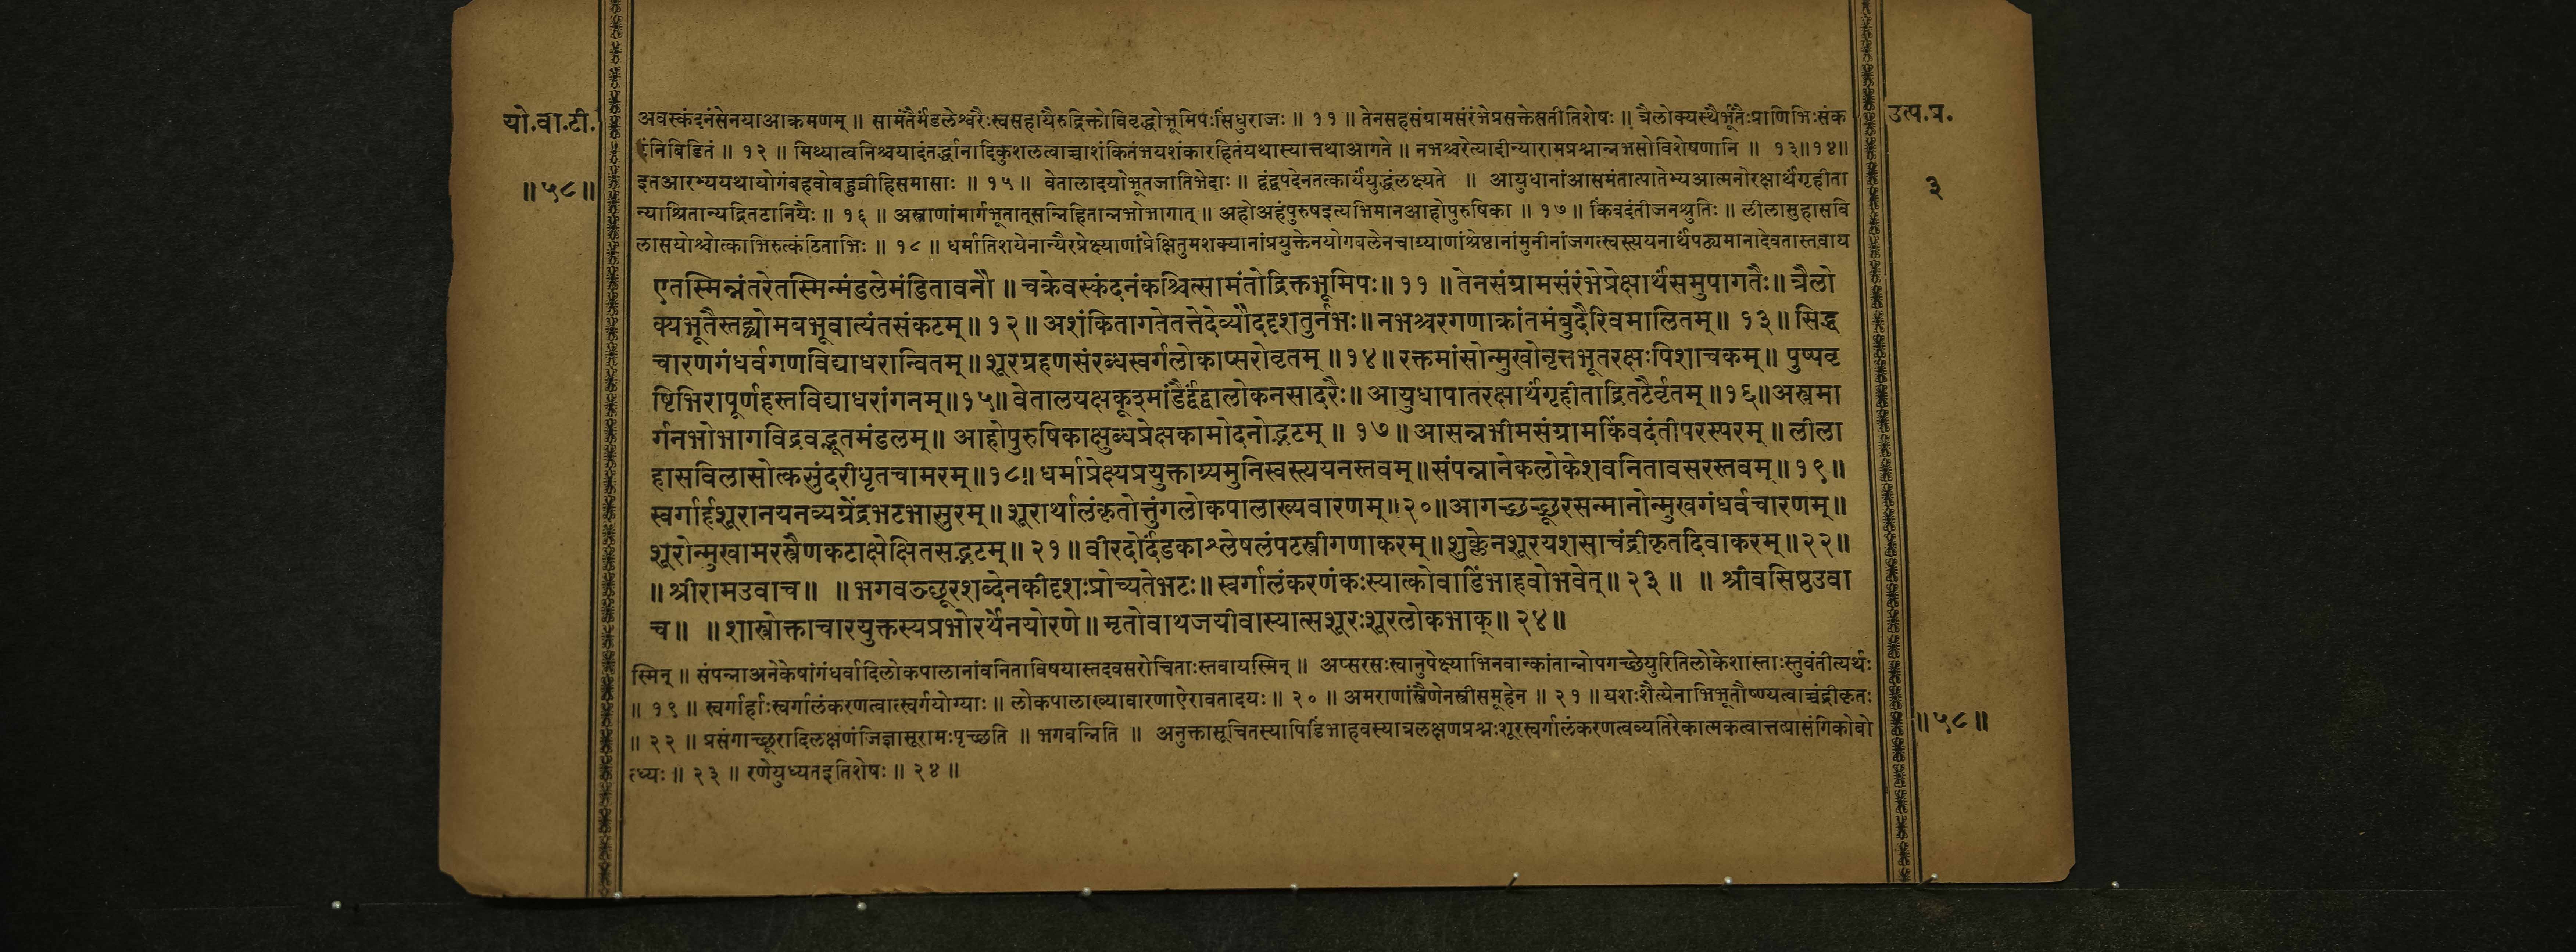 यो.वा.टी.
॥५८॥
अवस्कंदनंसेनयाआक्रमणम् ॥ सामंतैर्मंडलेश्वरैःस्वसहायैरुद्रिक्तोविवृद्धोभूमिपःसिंधुराजः ॥ ११ ॥ तेनसहसंग्रामसंरंभेप्रसक्तेसतीतिशेषः ॥ त्रैलोक्यस्थैर्भूतैःप्राणिभिःसंक
टंनिबिडितं ॥ १२ ॥ मिथ्यात्वनिश्चयादंतर्द्धानादिकुशलत्वाच्चाशंकितंभयशंकारहितंयथास्यात्तथाआगते ॥ नभश्चरेत्यादीन्यारामप्रश्नान्नभसोविशेषणानि ॥ १३॥१४॥
इतआरभ्ययथायोगंबहवोबहुव्रीहिसमासाः ॥ १५ ॥ वेतालादयोभूतजातिभेदाः ॥ द्वंद्वपदेनतत्कार्यंयुद्धंलक्ष्यते ॥ आयुधानांआसमंतात्पातेभ्यआत्मनोरक्षार्थंगृहीता
न्याश्रितान्यद्रितटानियैः ॥ १६ ॥ अस्त्राणांमार्गभूतात्सन्निहितान्नभोभागात् ॥ अहोअहंपुरुषइत्यभिमानआहोपुरुषिका ॥ १७ ॥ किंवदंतीजनश्रुतिः ॥ लीलासुहासवि
लासयोश्चोत्काभिरुत्कंठिताभिः ॥ १८ ॥ धर्मातिशयेनान्यैरप्रेक्ष्याणांप्रेक्षितुमशक्यानांप्रयुक्तेनयोगबलेनचाग्र्याणांश्रेष्ठानांमुनीनांजगत्स्वस्त्ययनार्थंपठ्यमानादेवतास्तवाय
एतस्मिन्नंतरेतस्मिन्मंडलेमंडितावनौ ॥ चक्रेवस्कंदनंकश्चित्सामंतोद्रिक्तभूमिपः॥ ११ ॥ तेनसंग्रामसंरंभेप्रेक्षार्थंसमुपागतैः॥ त्रैलो
क्यभूतैस्तद्व्योमबभूवात्यंतसंकटम्॥ १२॥ अशंकितागतेतत्तेदेव्यौददृशतुर्नभः॥ नभश्चरगणाक्रांतमंबुदैरिवमालितम्॥ १३॥ सिद्ध
चारणगंधर्वगणविद्याधरान्वितम्॥ शूरग्रहणसंरब्धस्वर्गलोकाप्सरोवृतम् ॥१४॥ रक्तमांसोन्मुखोन्नृत्तभूतरक्षःपिशाचकम्॥ पुष्पवृ
ष्टिभिरापूर्णहस्तविद्याधरांगनम्॥१५॥ वेतालयक्षकूश्मांडैर्द्वंद्वालोकनसादरैः॥ आयुधापातरक्षार्थंगृहीताद्रितटैर्वृतम्॥१६॥अस्त्रमा
र्गनभोभागविद्रवद्भूतमंडलम्॥ आहोपुरुषिकाक्षुब्धप्रेक्षकामोदनोद्भटम्॥ १७॥ आसन्नभीमसंग्रामकिंवदंतीपरस्परम् ॥ लीला
हासविलासोत्कसुंदरीधृतचामरम्॥१८॥ धर्माप्रेक्ष्यप्रयुक्ताग्र्यमुनिस्वस्त्ययनस्तवम्॥संपन्नानेकलोकेशवनितावसरस्तवम्॥१९॥
स्वर्गार्हशूरानयनव्यग्रेंद्रभटभासुरम्॥ शूरार्थालंकृतोत्तुंगलोकपालाख्यवारणम्॥२०॥आगच्छच्छूरसन्मानोन्मुखगंधर्वचारणम्॥
शूरोन्मुखामरस्त्रैणकटाक्षेक्षितसद्भटम्॥ २१॥ वीरदोर्दंडकाश्लेषलंपटस्त्रीगणाकरम्॥शुक्लेनशूरयशसाचंद्रीकृतदिवाकरम्॥२२॥
॥ श्रीरामउवाच॥ ॥ भगवञ्छूरशब्देनकीदृशःप्रोच्यतेभटः॥ स्वर्गालंकरणंकःस्यात्कोवाडिंभाहवोभवेत्॥ २३॥ ॥ श्रीवसिष्ठउवा
च॥ ॥ शास्त्रोक्ताचारयुक्तस्यप्रभोरर्थेनयोरणे॥ मृतोवाथजयीवास्यात्सशूरःशूरलोकभाक्॥ २४॥
स्मिन् ॥ संपन्नाअनेकेषांगंधर्वादिलोकपालानांवनिताविषयास्तदवसरोचिताःस्तवायस्मिन् ॥ अप्सरसःस्वानुपेक्ष्याभिनवान्कांतान्नोपगच्छेयुरितिलोकेशास्ताःस्तुवंतीत्यर्थः
॥ १९ ॥ स्वर्गार्हाःस्वर्गालंकरणत्वात्स्वर्गयोग्याः ॥ लोकपालाख्यावारणाऐरावतादयः ॥ २० ॥ अमराणांस्त्रैणेनस्त्रीसमूहेन ॥ २१ ॥ यशःशैत्येनाभिभूतौष्ण्यत्वाच्चंद्रीकृतः
॥ २२ ॥ प्रसंगाच्छूरादिलक्षणंजिज्ञासूरामःपृच्छति ॥ भगवन्निति ॥ अनुक्तासूचितस्यापिडिंभाहवस्यात्रलक्षणप्रश्नःशूरस्वर्गालंकरणत्वव्यतिरेकात्मकत्वात्तत्प्रासंगिकोबो
त्ध्यः ॥ २३ ॥ रणेयुध्यतइतिशेषः ॥ २४ ॥
उत्प.प्र.
३
॥५८॥